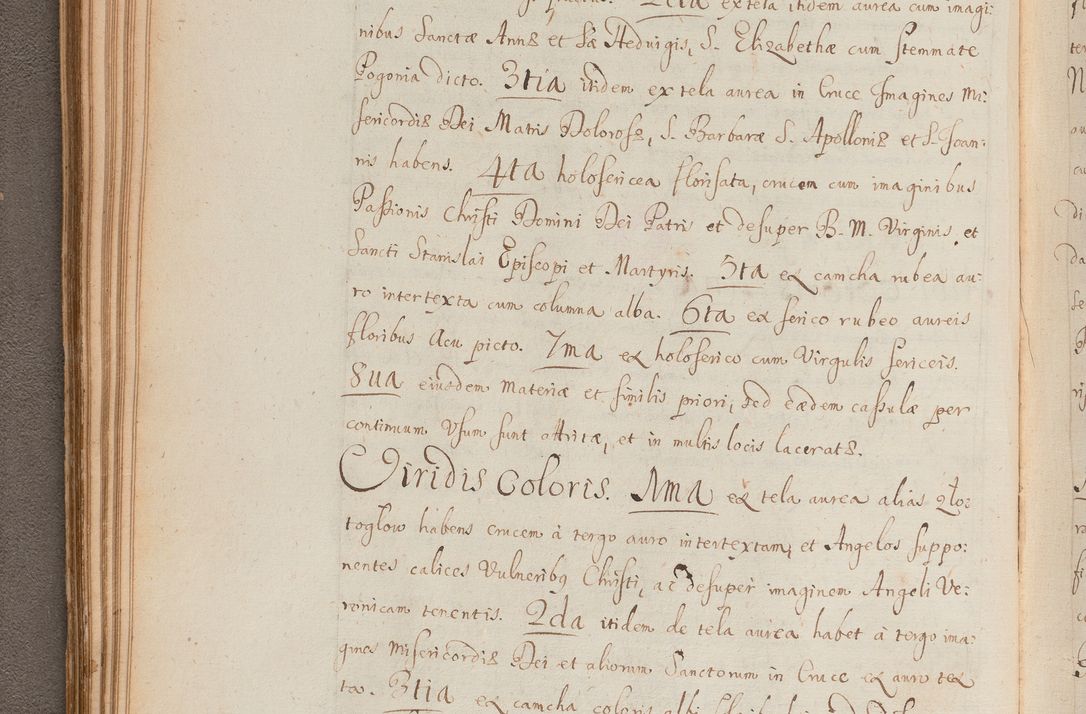 2da ex tela itidem aurea cum imagi:
nibus Sanctæ Annæ et Sæ Hedvigis, S. Elizabethæ cum Stemmate
Pogonia dicto. 3tia itidem ex tela aurea in Cruce Imagines Mi:
sericordiæ Dei, Matris Dolorosæ, S. Barbaræ S. Apolloniæ et S. Joan:
nis habens. 4ta holosericea florisata, crucem cum imaginibus
Passionis Christi Domini Dei Patris et desuper B. M. Virginis, et
Sancti Stanislai Episcopi et Martyris. 5ta ex camcha rubea au:
ro intertexta cum columna alba. 6ta ex serico rubeo aureis
floribus Acu picto. 7ma ex holoserico cum Virgulis sericeis.
8va eiusdem Materiæ et similis priori, sed eædem casulæ per
continuum Usum sunt attritæ, et in multis locis laceratæ.
Viridis Coloris. 1ma ex tela aurea alias Zło:
togłow habens crucem à tergo auro intertextam, et Angelos suppo:
nentes calices Vulneribus Christi, ac desuper imaginem Angeli Ve:
ronicam tenentis. 2da itidem de tela aurea habet à tergo ima:
gines Misericordiæ Dei et aliorum Sanctorum in Cruce ex auro tex
ta. 3tia ex camcha coloris albi